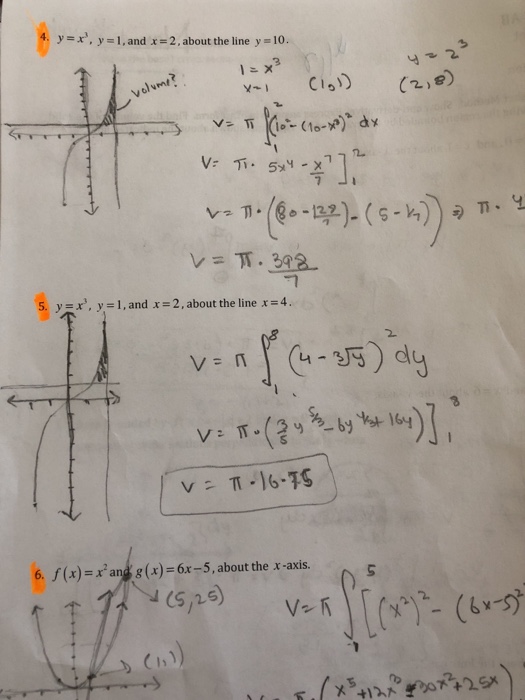 4. y = x³, y = 1, and x = 2, about the line y = 10.
volume?
1 = x³
x = 1
(1,1)
y = 2³
(2,8)
V = π ∫₁² (10² - (10-x³)² dx
V = π · 5x⁴ - x⁷/7 ]₁²
V = π · (80 - 128/7) - (5 - 1/7)) ⇒ π ·
V = π · 398/7
5. y = x³, y = 1, and x = 2, about the line x = 4.
V = π ∫₁⁸ (4 - ³√y)² dy
V = π · (3/5 y^5/3 - 6y^4/3 + 16y)]₁⁸
V = π · 16.75
6. f(x) = x² and g(x) = 6x - 5, about the x-axis.
(5,25)
(1,1)
V = π ∫₁⁵ [(x²)² - (6x-5)²